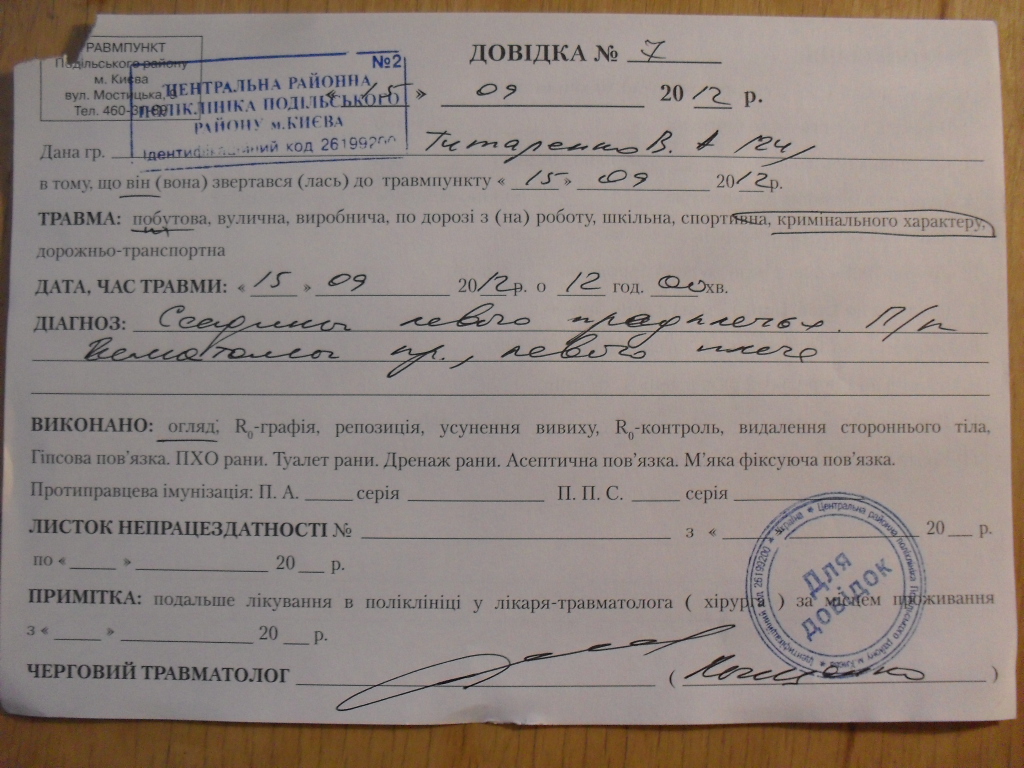 РАВМПУНКТ
Подільського району
м. Києва
вул. Мостицька, 9
Тел. 460-
№2
ЦЕНТРАЛЬНА РАЙОННА
ПОЛІКЛІНІКА ПОДІЛЬСЬКОГО
РАЙОНУ м.КИЄВА
Ідентифікаційний код 26199200
ДОВІДКА № 7
« 15 » 09 2012 р.
Дана гр. Титаренко В. А
в тому, що він (вона) звертався (лась) до травмпункту « 15 » 09 2012р.
ТРАВМА: побутова, вулична, виробнича, по дорозі з (на) роботу, шкільна, спортивна, кримінального характеру,
дорожньо-транспортна
ДАТА, ЧАС ТРАВМИ: « 15 » 09 2012р. о 12 год. 00 хв.
ДІАГНОЗ: Ссадины левого предплечья. П/к
гематомы пр., левого плеча
ВИКОНАНО: огляд; R0-графія, репозиція, усунення вивиху, R0-контроль, видалення стороннього тіла,
Гіпсова пов’язка. ПХО рани. Туалет рани. Дренаж рани. Асептична пов’язка. М’яка фіксуюча пов’язка.
Протиправцева імунізація: П. А. _____ серія _____ П. П. С. _____ серія _____
ЛИСТОК НЕПРАЦЕЗДАТНОСТІ № _____ з « _____ 20 __ р.
по « ____ » _____ 20 __ р.
ПРИМІТКА: подальше лікування в поліклініці у лікаря-травматолога ( хірурга ) за місцем проживання
з « ____ » _____ 20 __ р.
ЧЕРГОВИЙ ТРАВМАТОЛОГ _____ ( )
Для
довідок
Україна * Центральна районна поліклініка Подільського району м.Києва * Ідентифікаційний код 26199200 *